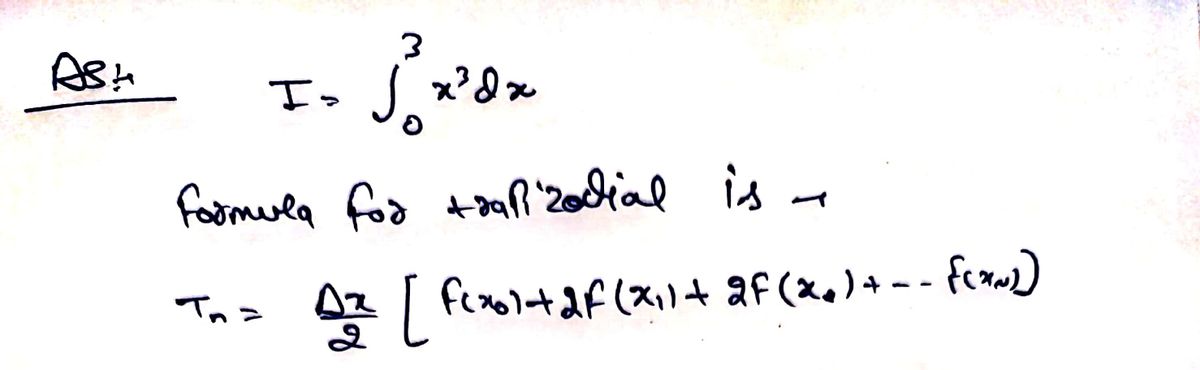 I = ∫₀³ x³ dx
formula for trapizodial is →
Tₙ = Δx/2 [ f(x₀) + 2f(x₁) + 2f(x₂) + -- f(x_N) ]